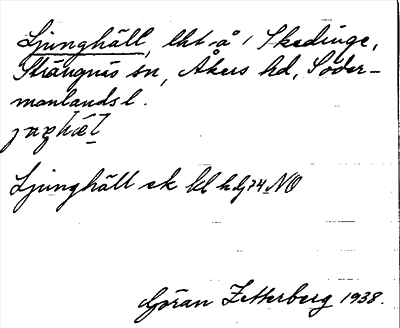 Ljunghäll, lht å 1 Skedinge,
Strängnäs sn, Åkers hd, Söder-
manlands l.
Ljunghäll ek bl hdj74 NO
Göran Zetterberg 1938.